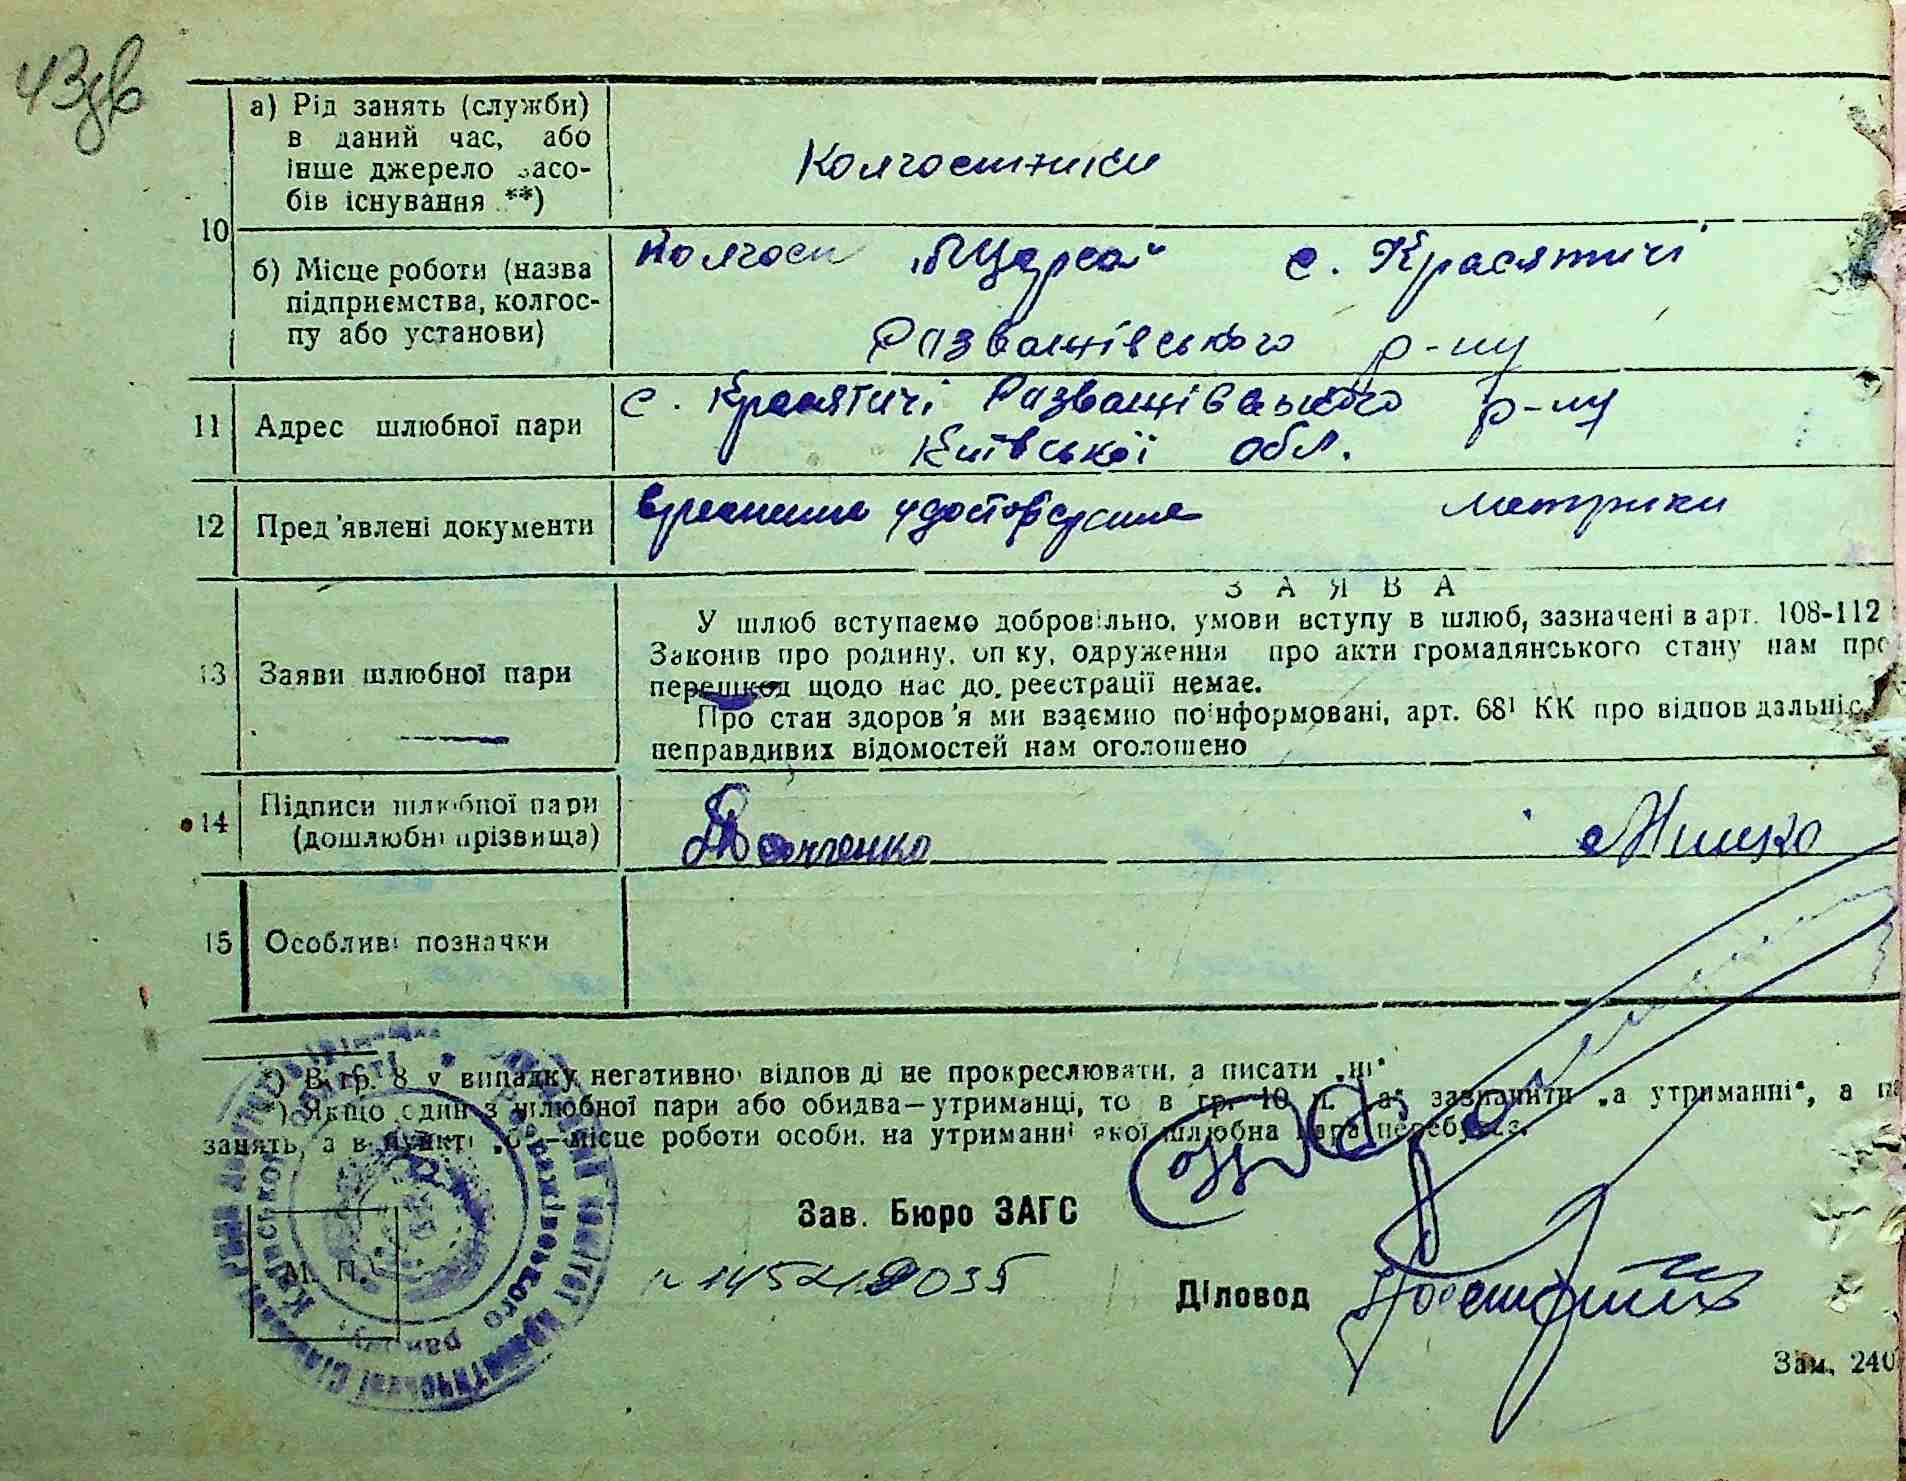 43 зв
10
а) Рід занять (служби)
в даний час, або
інше джерело засо-
бів існування **)
Колгоспники
б) Місце роботи (назва
підприємства, колгос-
пу або установи)
Колгосп ім. Щорса с. Красятичі
Розважівського р-ну
11 Адрес шлюбної пари
с. Красятичі Розважівського р-ну
Київської обл.
12 Пред'явлені документи
временные удостоверения метрики
13 Заяви шлюбної пари
ЗАЯВА
У шлюб вступаємо добровільно, умови вступу в шлюб, зазначені в арт. 108-112
Законів про родину, опіку, одруження про акти громадянського стану нам про
перешкод щодо нас до реєстрації немає.
Про стан здоров'я ми взаємно поінформовані, арт. 68¹ КК про відповідальніс
неправдивих відомостей нам оголошено
14 Підписи шлюбної пари
(дошлюбні прізвища)
15 Особливі позначки
*) В гр. 8 у випадку негативної відповіді не прокреслювати, а писати „ні“
*) Якщо один з шлюбної пари або обидва—утриманці, то в гр. 10 п. „а“ зазначити „а утриманні“, а
занять, а в пункті „б“—місце роботи особи, на утриманні якої шлюбна пара перебуває.
Зав. Бюро ЗАГС
М. П.
Діловод
Зам. 240